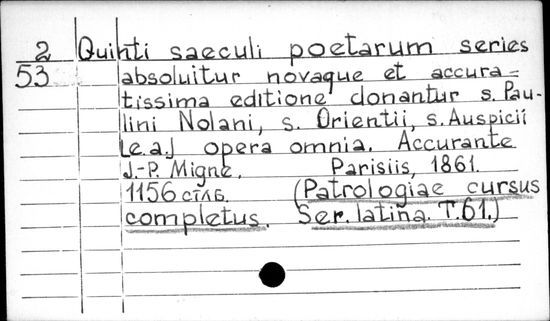 2 Quinti saeculi poetarum series
53 absoluitur novaque et accura-
tissima editione donantur s. Pau-
lini Nolani, s. Orientii, s. Auspicii
[e.a.] opera omnia. Accurante
J.-P. Migne. Parisiis, 1861.
1156 стлб. (Patrologiae cursus
completus. Ser. latina. T.61.)